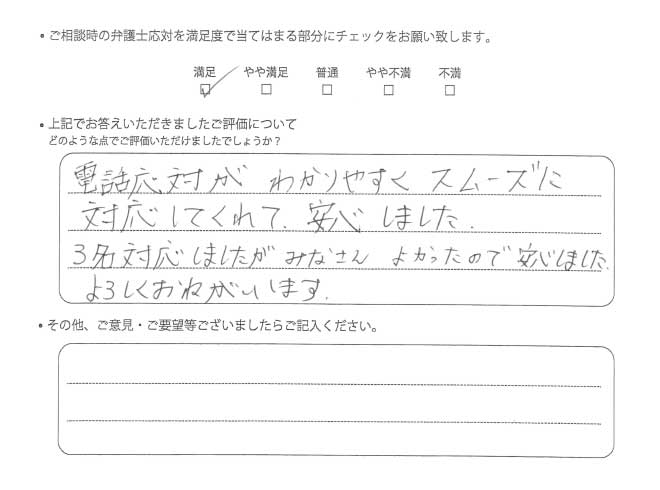 • ご相談時の弁護士応対を満足度で当てはまる部分にチェックをお願い致します。
満足 やや満足 普通 やや不満 不満
☑ □ □ □ □
• 上記でお答えいただきましたご評価について
どのような点でご評価いただけましたでしょうか？
電話応対が わかりやすく スムーズに
対応してくれて、安心しました。
3名対応しましたが みなさん よかったので安心しました。
よろしくおねがいいます。
• その他、ご意見・ご要望等ございましたらご記入ください。